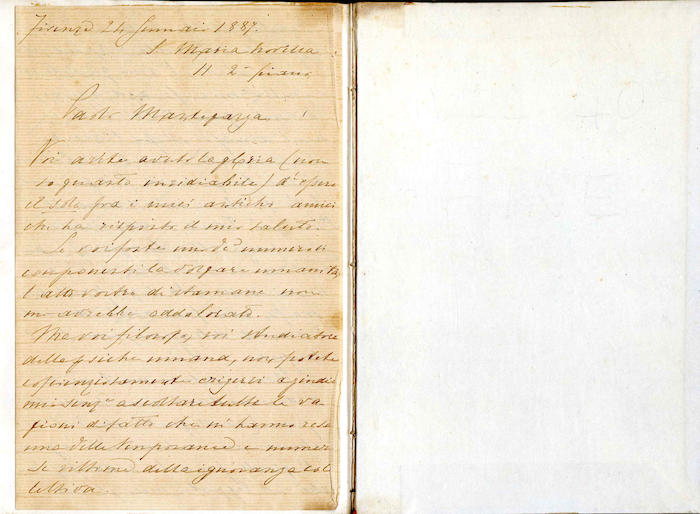 Firenze 24 Gennaio 1887.
S. Maria Novella
11 2º piano
Paolo Mantegazza!
Voi avete avuto la gloria (non
so quanto invidiabile) d'essere
il solo fra i miei antichi amici
che ha risposto al mio saluto.
Se voi foste uno de' numerosi
componenti la volgare umanità
l'atto vostro di stamane non
m'avrebbe addolorato.
Ma voi filosofo, voi studiatore
della psiche umana, non potete
coscienziosamente erigervi a giudice
mio senza ascoltare tutte le ra
gioni di fatto che m'hanno resa
una delle temporanee e numero
se vittime della ignoranza col
lettiva.